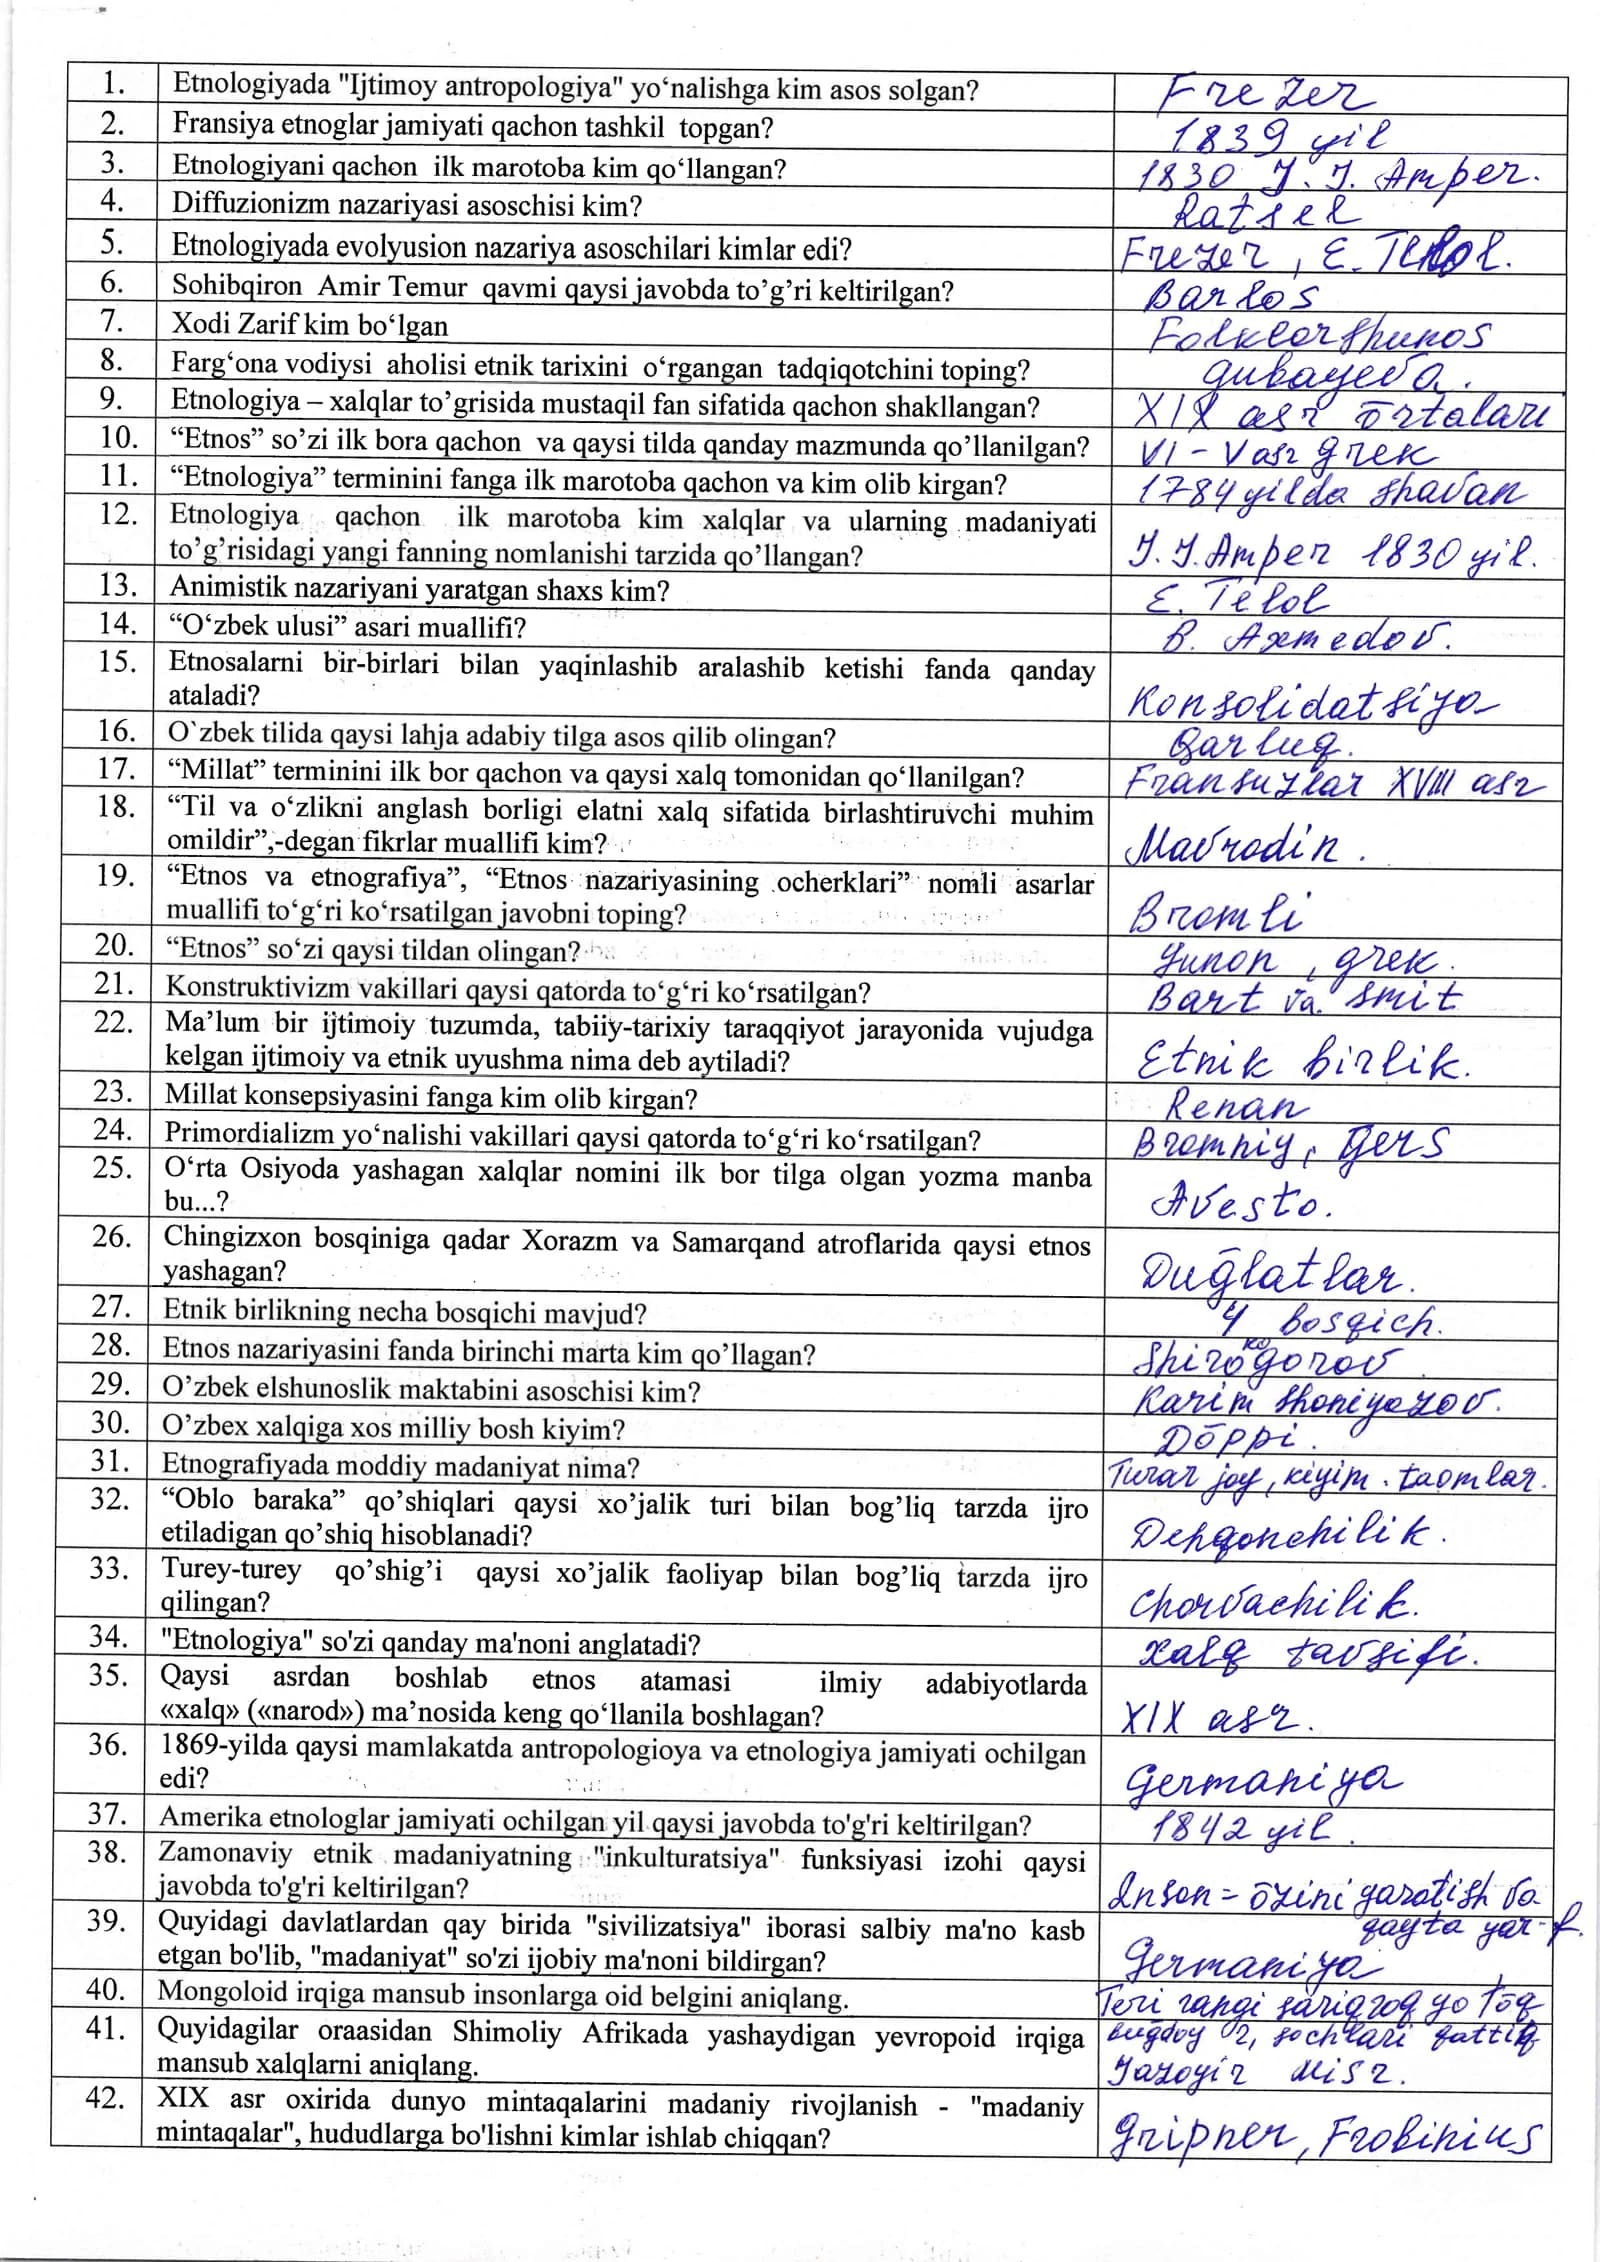 1. Etnologiyada "Ijtimoy antropologiya" yo‘nalishga kim asos solgan? Frezer
2. Fransiya etnoglar jamiyati qachon tashkil topgan? 1839 yil
3. Etnologiyani qachon ilk marotoba kim qo‘llangan? 1830 J. J. Amper.
4. Diffuzionizm nazariyasi asoschisi kim? Ratsel
5. Etnologiyada evolyusion nazariya asoschilari kimlar edi? Frezer, E.
6. Sohibqiron Amir Temur qavmi qaysi javobda to’g’ri keltirilgan? Barlos
7. Xodi Zarif kim bo‘lgan Folklorshunos
8. Farg‘ona vodiysi aholisi etnik tarixini o‘rgangan tadqiqotchini toping? Gubayeva.
9. Etnologiya – xalqlar to’grisida mustaqil fan sifatida qachon shakllangan? XIX asr ōrtalari
10. “Etnos” so’zi ilk bora qachon va qaysi tilda qanday mazmunda qo’llanilgan? VI - V asr grek
11. “Etnologiya” terminini fanga ilk marotoba qachon va kim olib kirgan? 1784 yilda shavan
12. Etnologiya qachon ilk marotoba kim xalqlar va ularning madaniyati
to’g’risidagi yangi fanning nomlanishi tarzida qo’llangan? J. J. Amper 1830 yil.
13. Animistik nazariyani yaratgan shaxs kim? E. Telol
14. “O‘zbek ulusi” asari muallifi? B. Axmedov.
15. Etnosalarni bir-birlari bilan yaqinlashib aralashib ketishi fanda qanday
ataladi? Konsolidatsiya
16. O`zbek tilida qaysi lahja adabiy tilga asos qilib olingan? Qarluq.
17. “Millat” terminini ilk bor qachon va qaysi xalq tomonidan qo‘llanilgan? Fransuzlar XVIII asr
18. “Til va o‘zlikni anglash borligi elatni xalq sifatida birlashtiruvchi muhim
omildir”,-degan fikrlar muallifi kim? Mavrodin.
19. “Etnos va etnografiya”, “Etnos nazariyasining ocherklari” nomli asarlar
muallifi to‘g‘ri ko‘rsatilgan javobni toping? Bromli
20. “Etnos” so‘zi qaysi tildan olingan? Yunon, grek.
21. Konstruktivizm vakillari qaysi qatorda to‘g‘ri ko‘rsatilgan? Bart va smit
22. Ma’lum bir ijtimoiy tuzumda, tabiiy-tarixiy taraqqiyot jarayonida vujudga
kelgan ijtimoiy va etnik uyushma nima deb aytiladi? Etnik birlik.
23. Millat konsepsiyasini fanga kim olib kirgan? Renan
24. Primordializm yo‘nalishi vakillari qaysi qatorda to‘g‘ri ko‘rsatilgan? Bromniy, Gers
25. O‘rta Osiyoda yashagan xalqlar nomini ilk bor tilga olgan yozma manba
bu...? Avesto.
26. Chingizxon bosqiniga qadar Xorazm va Samarqand atroflarida qaysi etnos
yashagan? Duḡlatlar.
27. Etnik birlikning necha bosqichi mavjud? 4 bosqich.
28. Etnos nazariyasini fanda birinchi marta kim qo’llagan? Shirokogorov
29. O’zbek elshunoslik maktabini asoschisi kim? Karim Shoniyozov.
30. O’zbex xalqiga xos milliy bosh kiyim? Dōppi.
31. Etnografiyada moddiy madaniyat nima? Turar joy, kiyim. taomlar.
32. “Oblo baraka” qo’shiqlari qaysi xo’jalik turi bilan bog’liq tarzda ijro
etiladigan qo’shiq hisoblanadi? Dehqonchilik.
33. Turey-turey qo’shig’i qaysi xo’jalik faoliyap bilan bog’liq tarzda ijro
qilingan? Chorvachilik.
34. "Etnologiya" so'zi qanday ma'noni anglatadi? Xalq tavsifi.
35. Qaysi asrdan boshlab etnos atamasi ilmiy adabiyotlarda
«xalq» («narod») ma’nosida keng qo‘llanila boshlagan? XIX asr.
36. 1869-yilda qaysi mamlakatda antropologioya va etnologiya jamiyati ochilgan
edi? Germaniya
37. Amerika etnologlar jamiyati ochilgan yil qaysi javobda to'g'ri keltirilgan? 1842 yil.
38. Zamonaviy etnik madaniyatning "inkulturatsiya" funksiyasi izohi qaysi
javobda to'g'ri keltirilgan? Inson - ōzini yaratish va
qayta yar-f.
39. Quyidagi davlatlardan qay birida "sivilizatsiya" iborasi salbiy ma'no kasb
etgan bo'lib, "madaniyat" so'zi ijobiy ma'noni bildirgan? Germaniya
40. Mongoloid irqiga mansub insonlarga oid belgini aniqlang. Teri rangi sariqroq yo tōq
buḡdoy r, sochlari qattiq
41. Quyidagilar oraasidan Shimoliy Afrikada yashaydigan yevropoid irqiga
mansub xalqlarni aniqlang. Jazoyir Misr.
42. XIX asr oxirida dunyo mintaqalarini madaniy rivojlanish - "madaniy
mintaqalar", hududlarga bo'lishni kimlar ishlab chiqqan? Gripner, Frobinius